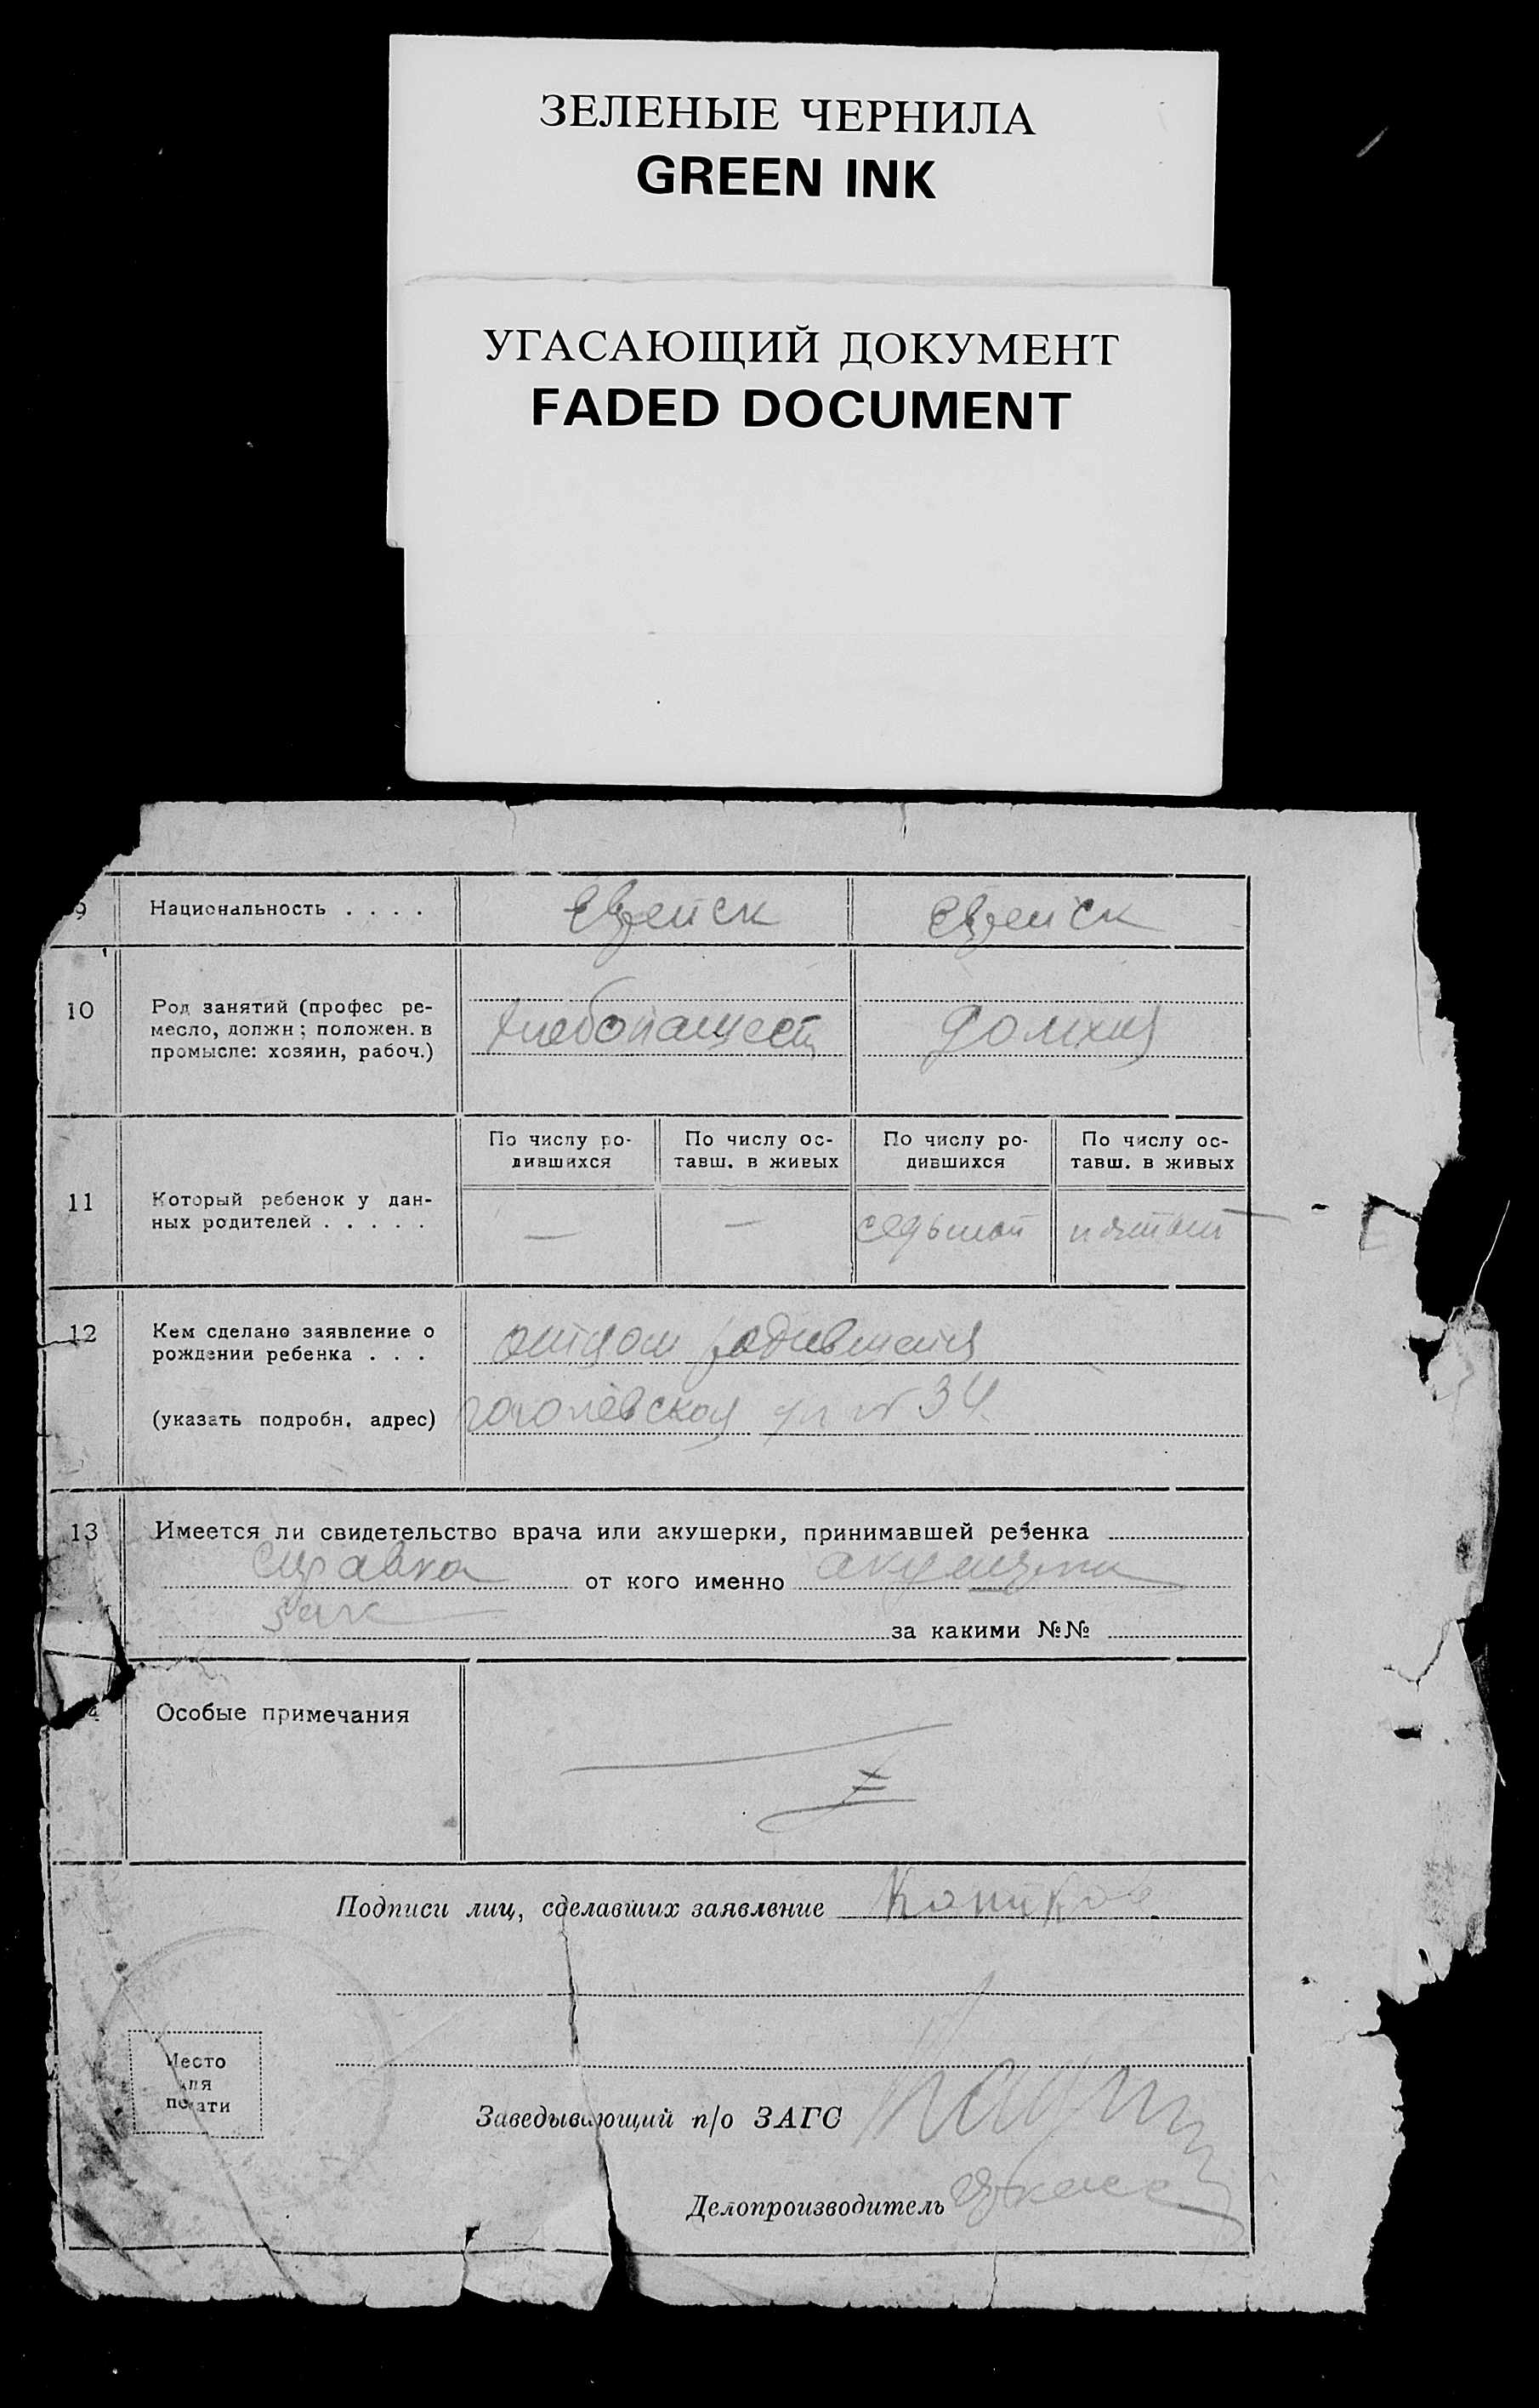 ЗЕЛЕНЫЕ ЧЕРНИЛА
GREEN INK
УГАСАЮЩИЙ ДОКУМЕНТ
FADED DOCUMENT
9 Национальность . . . . Еврейск Еврейск
10 Род занятий (профес ре-
месло, должн; положен. в
промысле: хозяин, рабоч.)
хлебопашест домхоз
По числу ро-
дившихся
По числу ос-
тавш. в живых
По числу ро-
дившихся
По числу ос-
тавш. в живых
11 Который ребенок у дан-
ных родителей . . . . .
— — седьмой пятый
12 Кем сделано заявление о
рождении ребенка . . . отцом родившегося
(указать подробн. адрес) гоголевская ул № 34
13 Имеется ли свидетельство врача или акушерки, принимавшей ребенка
справка от кого именно акушерки
Зак за какими №№
Особые примечания
Подписи лиц, сделавших заявление
Место
для
печати
Заведывающий п/о ЗАГС
Делопроизводитель